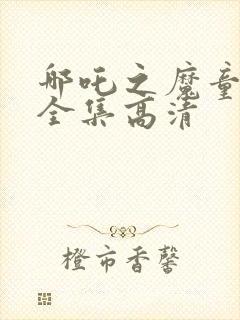 哪吒之魔童
全集高清
橙市香馨